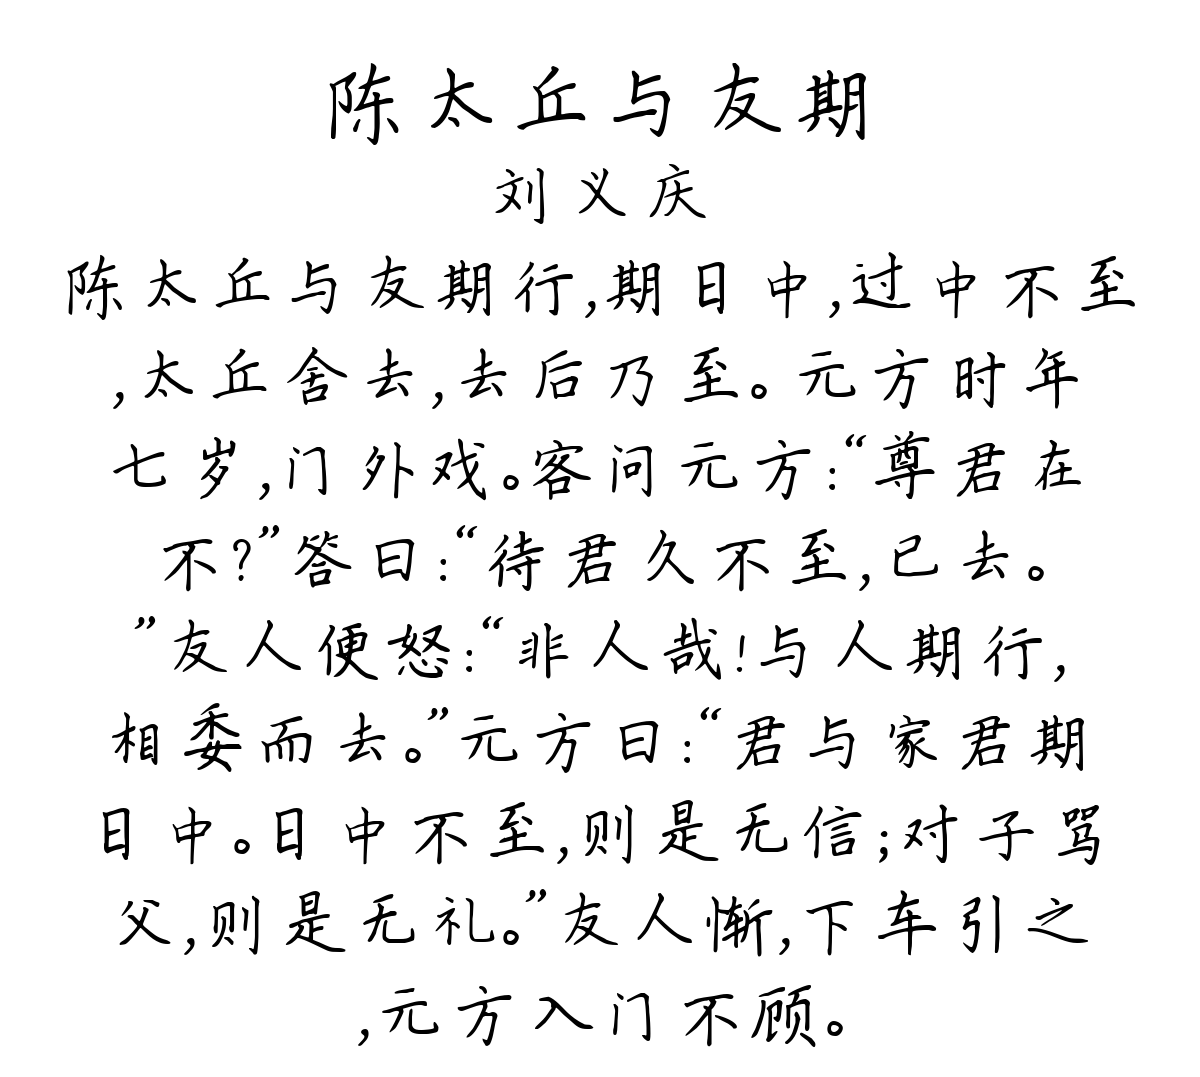 陈太丘与友期
刘义庆
陈太丘与友期行,期日中,过中不至
,太丘舍去,去后乃至。元方时年
七岁,门外戏。客问元方:“尊君在
不?”答曰:“待君久不至,已去。
”友人便怒:“非人哉!与人期行,
相委而去。”元方曰:“君与家君期
日中。日中不至,则是无信;对子骂
父,则是无礼。”友人惭,下车引之
,元方入门不顾。